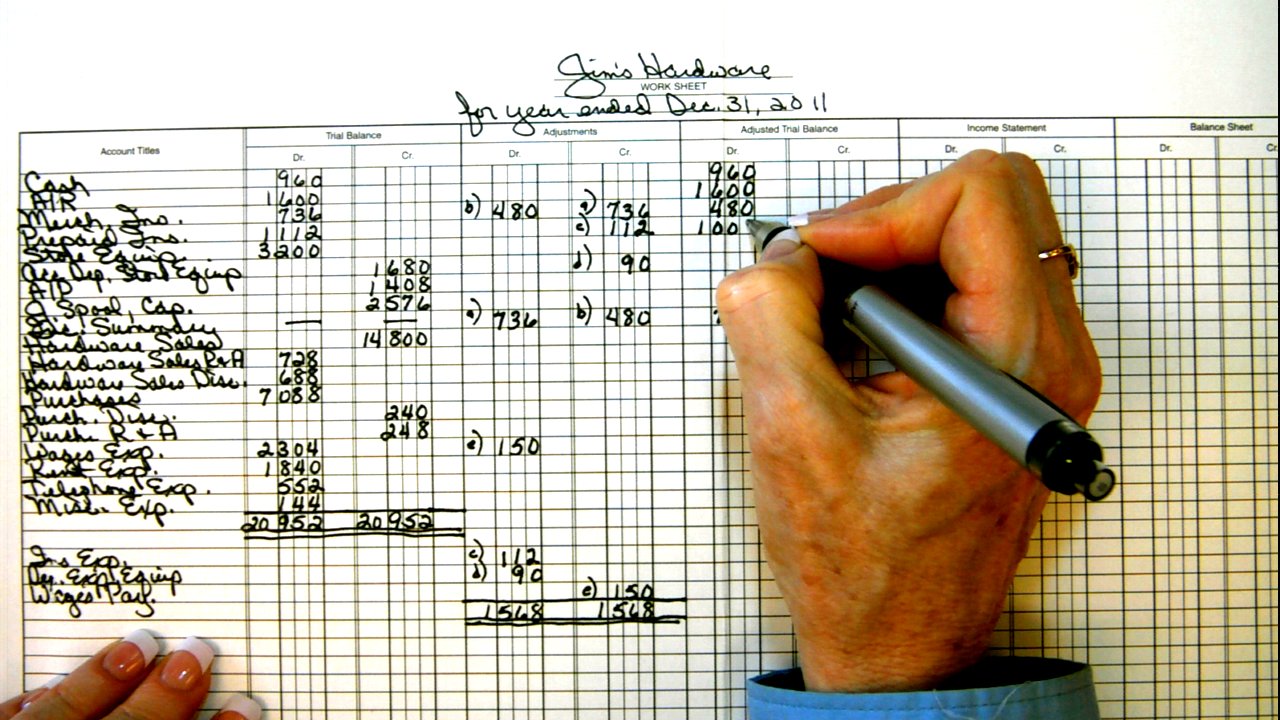 Jim's Hardware
WORK SHEET
for year ended Dec. 31, 2011
Account Titles Trial Balance Adjustments Adjusted Trial Balance Income Statement Balance Sheet
Dr. Cr. Dr. Cr. Dr. Cr. Dr. Cr. Dr. Cr.
Cash 960 960
A/R 1600 1600
Merch. Ins. 736 b) 480 a) 736 480
Prepaid Ins. 1112 c) 112 100
Store Equip. 3200
Acc. Dep. Store Equip 1680 d) 90
A/P 1408
Spool, Cap. 2576
Summary — — a) 736 b) 480
Hardware Sales 14800
Hardware Sales R&A 728
Hardware Sales Disc. 688
Purchases 7088
Purch. Disc. 240
Purch. R & A 248
Wages Exp. 2304 e) 150
Rent Exp. 1840
Telephone Exp. 552
Misc. Exp. 144
20952 20952
Ins Exp. c) 112
Dep. Exp. Equip d) 90
Wages Pay. e) 150
1568 1568